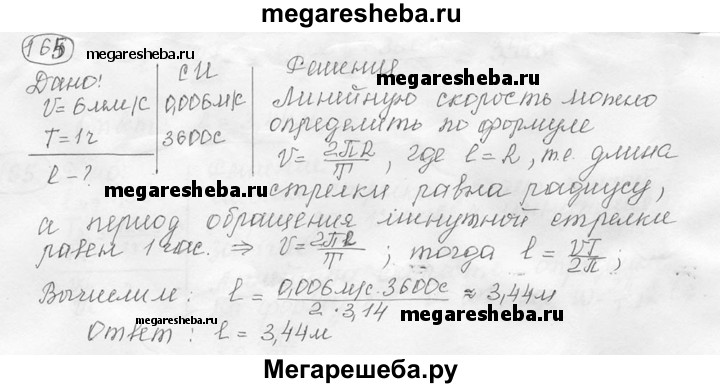 megaresheba.ru
165
megaresheba.ru
Дано:
V = 6мм/с
T = 1ч
l - ?
СИ
0,006м/с
3600с
Решение
Линейную скорость можно
определить по формуле
V = 2πR/T, где l = R, т.е. длина
megaresheba.ru
стрелки равна радиусу,
а период обращения минутной стрелки
равен 1 час. ⇒ V = 2πR/T ; тогда l = VT/2π ;
Вычислим: l = 0,006м/с · 3600с / 2 · 3,14 ≈ 3,44м
megaresheba.ru
megaresheba.ru
Ответ: l = 3,44м
Мегарешеба.ру